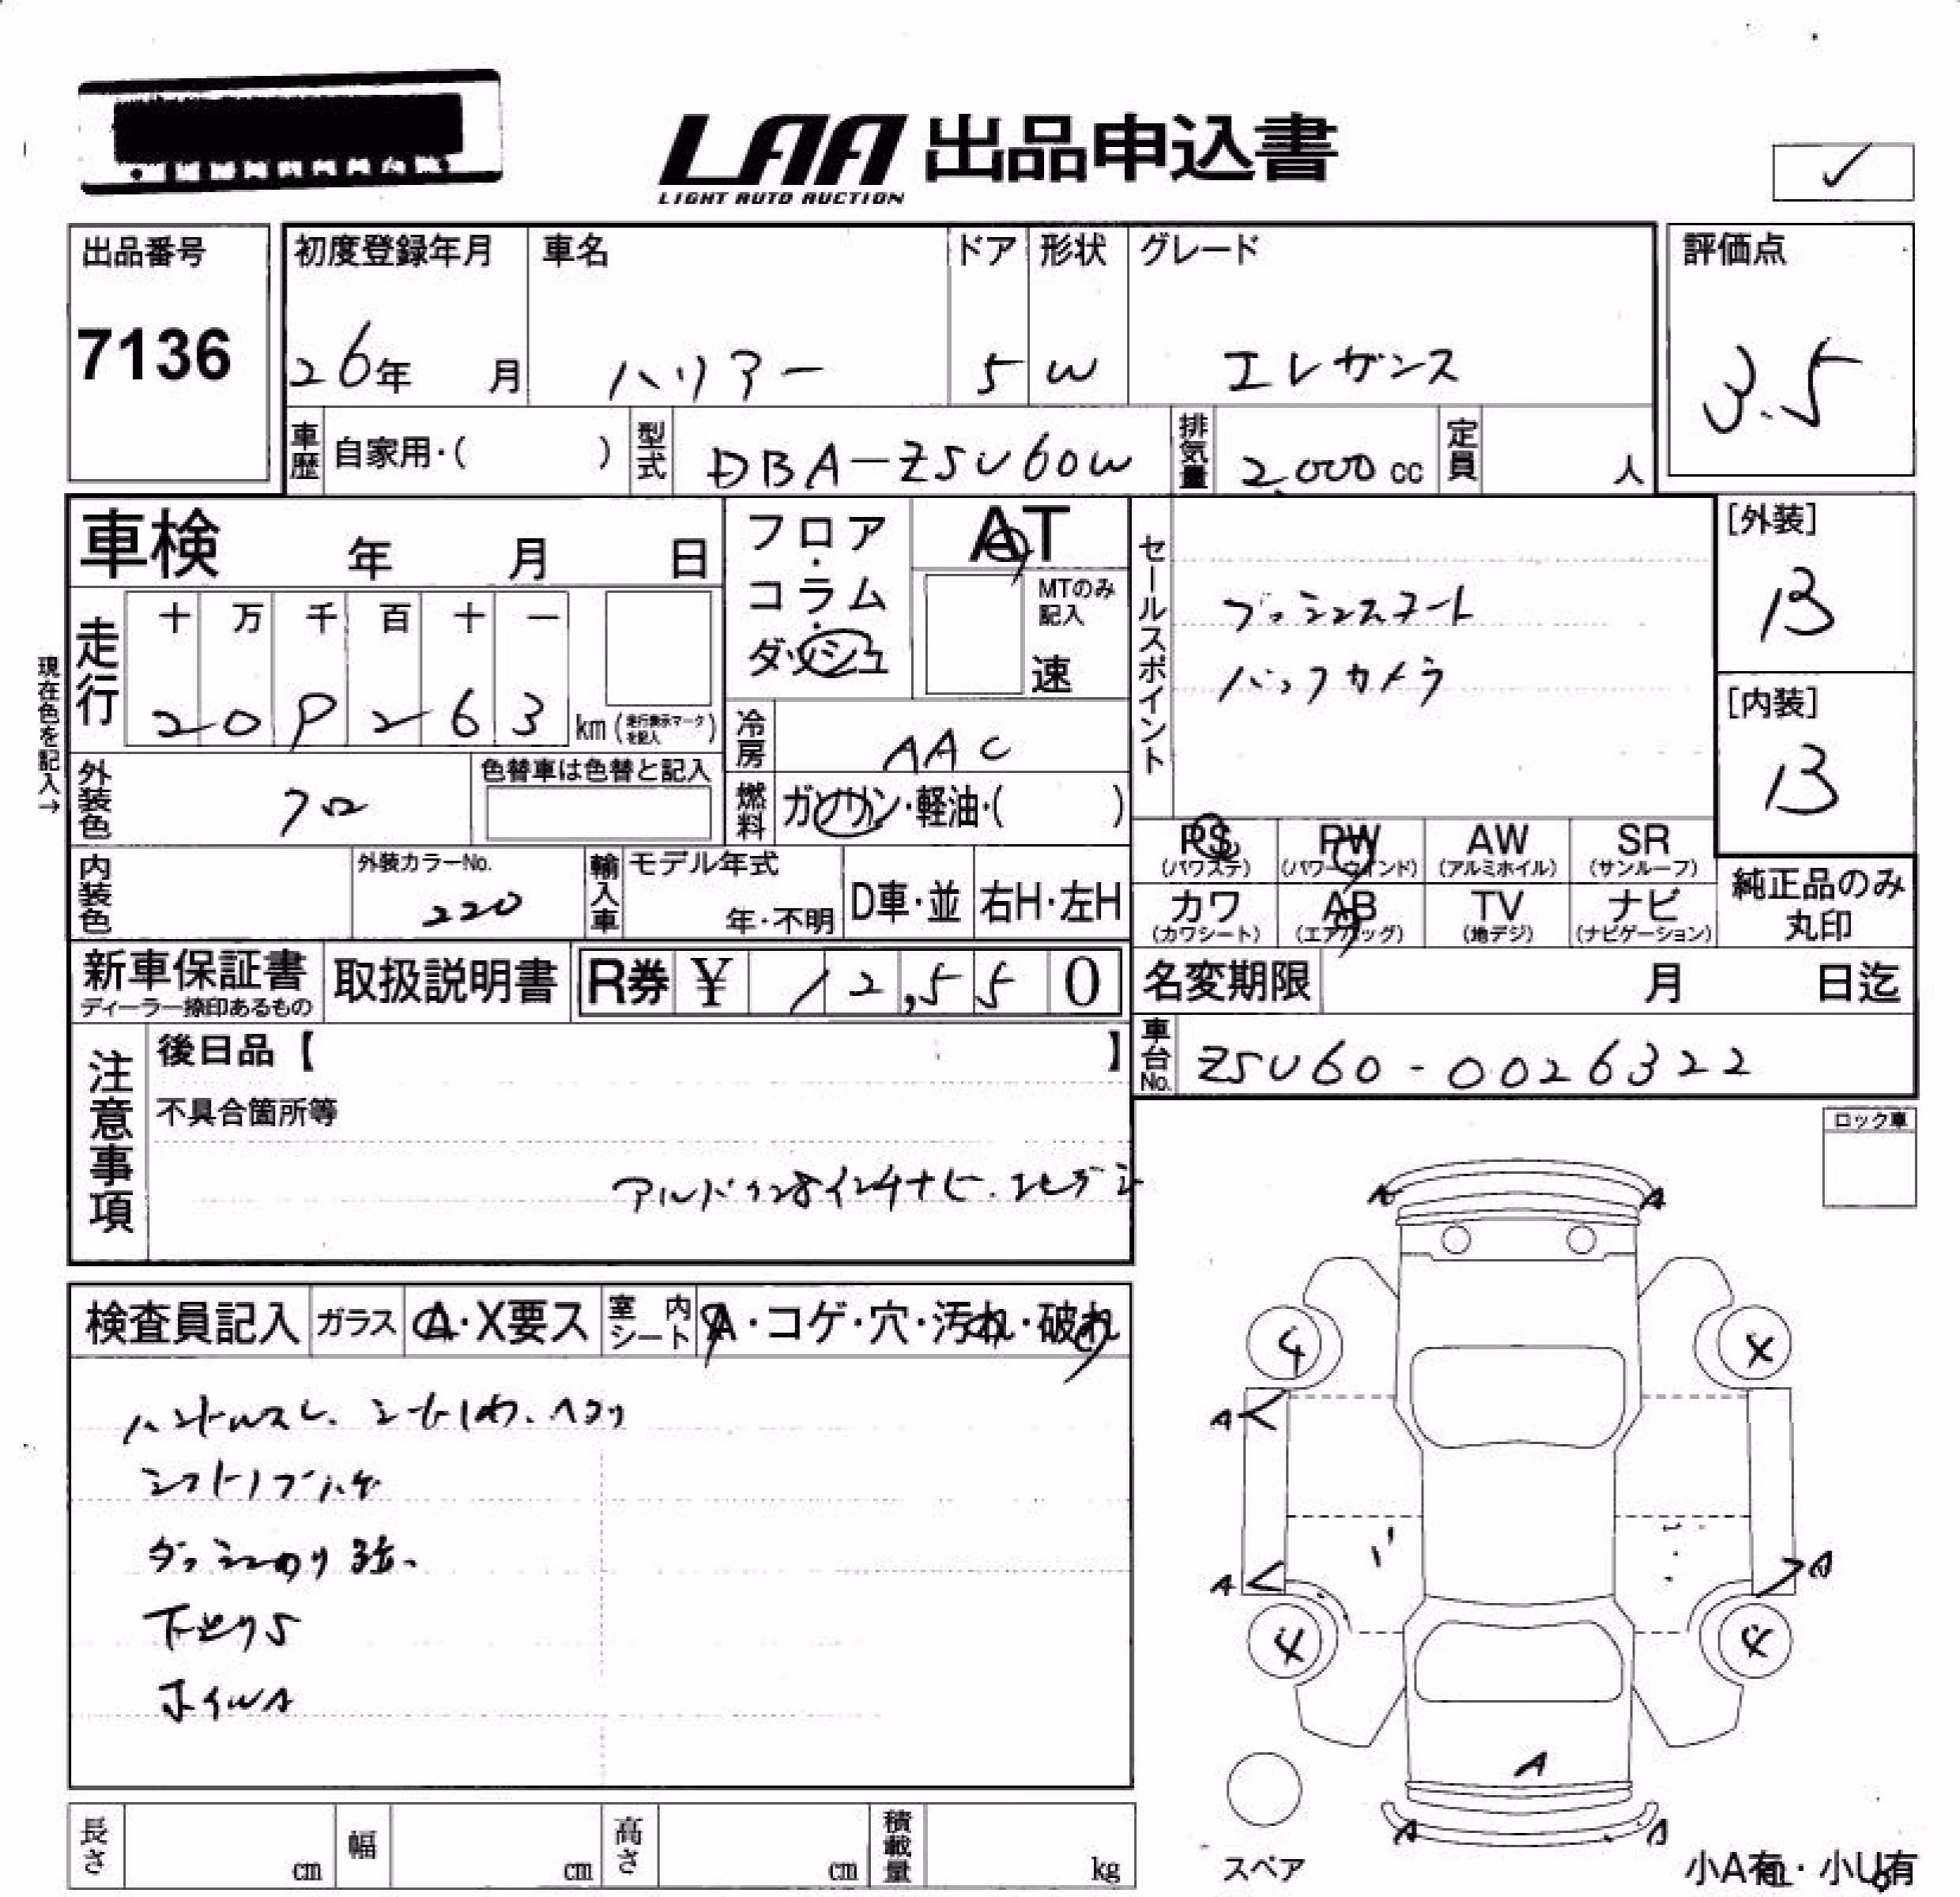 LAA 出品申込書
LIGHT AUTO AUCTION
出品番号
7136
初度登録年月
26年 月
車名
ハリアー
ドア
5
形状
W
グレード
エレガンス
評価点
3.5
車歴 自家用・( )
型式 DBA-ZSU60W
排気量 2,000 cc
定員 人
車検 年 月 日
フロア・コラム・ダッシュ
AT
MTのみ記入
速
セールスポイント
プッシュスタート
バックカメラ
[外装]
B
[内装]
B
現在色を記入→
走行
十 万 千 百 十 一
2 0 9 2 6 3 km (走行表示マークを記入)
冷房 AAC
外装色 クロ
色替車は色替と記入
燃料 ガソリン・軽油・( )
PS (パワステ)
PW (パワーウィンド)
AW (アルミホイル)
SR (サンルーフ)
カワ (カワシート)
AB (エアバッグ)
TV (地デジ)
ナビ (ナビゲーション)
純正品のみ丸印
内装色
外装カラーNo.
220
輸入車 モデル年式
年・不明
D車・並
右H・左H
新車保証書
ディーラー捺印あるもの
取扱説明書
R券 ¥ 12,550
名変期限 月 日迄
車台No. ZSU60-0026322
注意事項
後日品【 】
不具合箇所等
ロック車
検査員記入 ガラス A・X要ス 室内シート A・コゲ・穴・汚れ・破れ
ハンドルスレ、
シフトノブハゲ
下廻りS
ホイルA
A A
4 X
A
A A
4 4
A
A A
スペア
小A有・小U有
長さ cm 幅 cm 高さ cm 積載量 kg